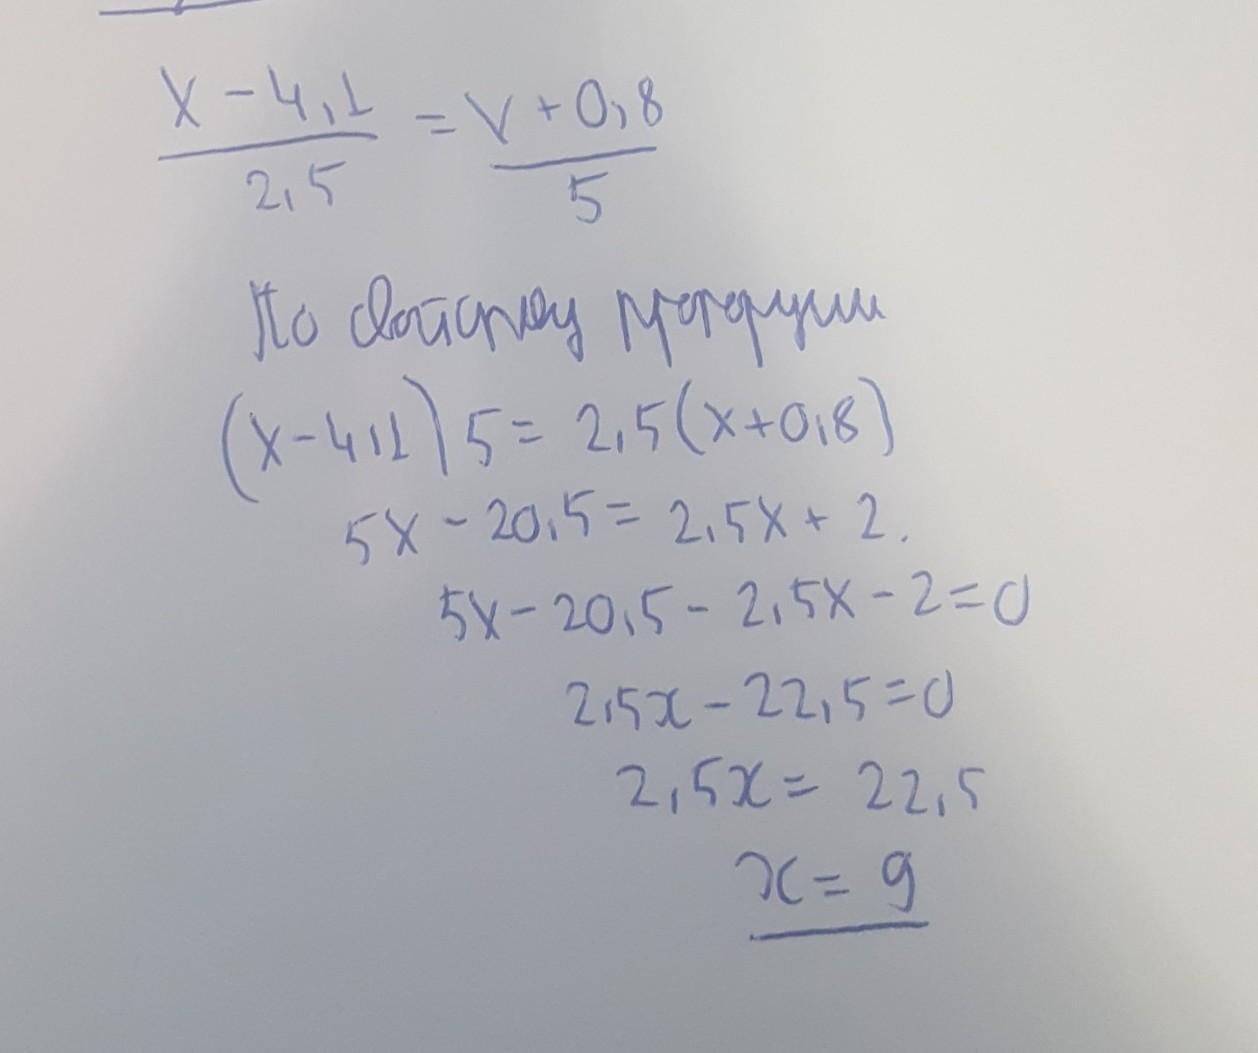 x - 4,1 / 2,5 = x + 0,8 / 5
По свойству пропорции
(x - 4,1) 5 = 2,5 (x + 0,8)
5x - 20,5 = 2,5x + 2.
5x - 20,5 - 2,5x - 2 = 0
2,5x - 22,5 = 0
2,5x = 22,5
x = 9